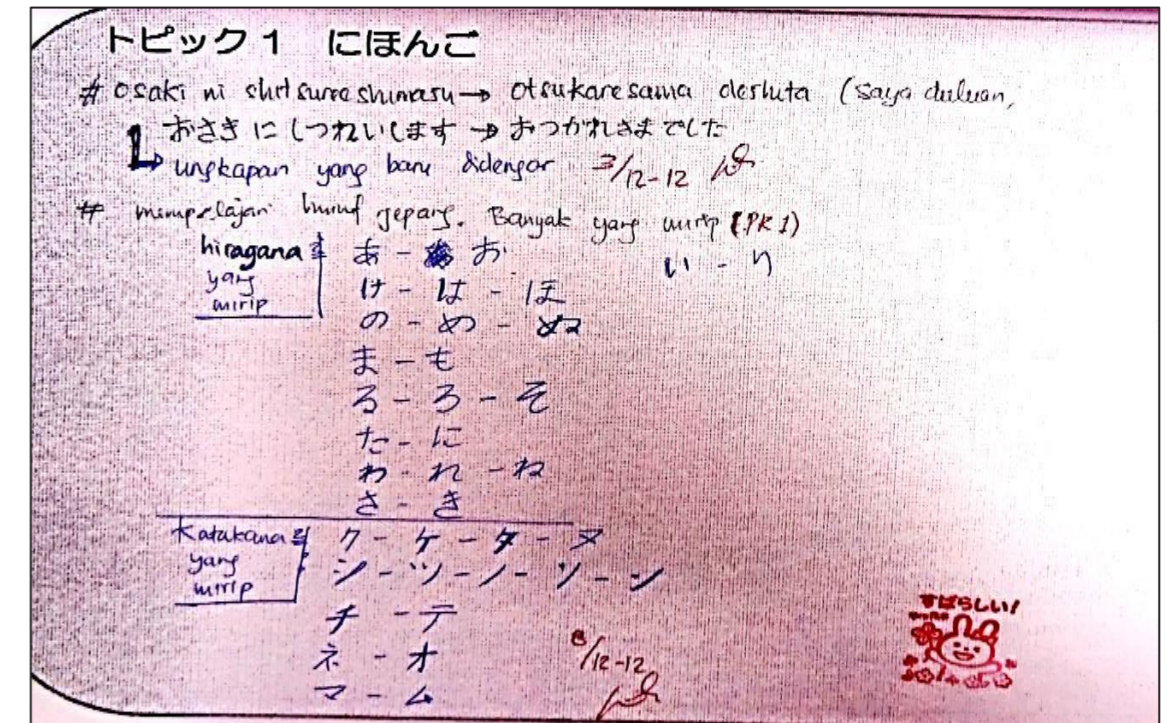 トピック1 にほんご
# osaki ni shitsureeshimasu → otsukaresama deshita (saya duluan,
おさきにしつれいします → おつかれさまでした
ungkapan yang baru didengar 3/12-12
# mempelajari huruf jepang. Banyak yang mirip (PK1)
hiragana yang mirip
あ - お い - り
け - は - ほ
の - め - ぬ
ま - も
る - ろ - そ
た - に
わ - れ - ね
さ - き
Katakana yang mirip
ク - ケ - タ - ヌ
シ - ツ - ノ - ソ - ン
チ - テ
ネ - オ
マ - ム
8/12-12
すばらしい!